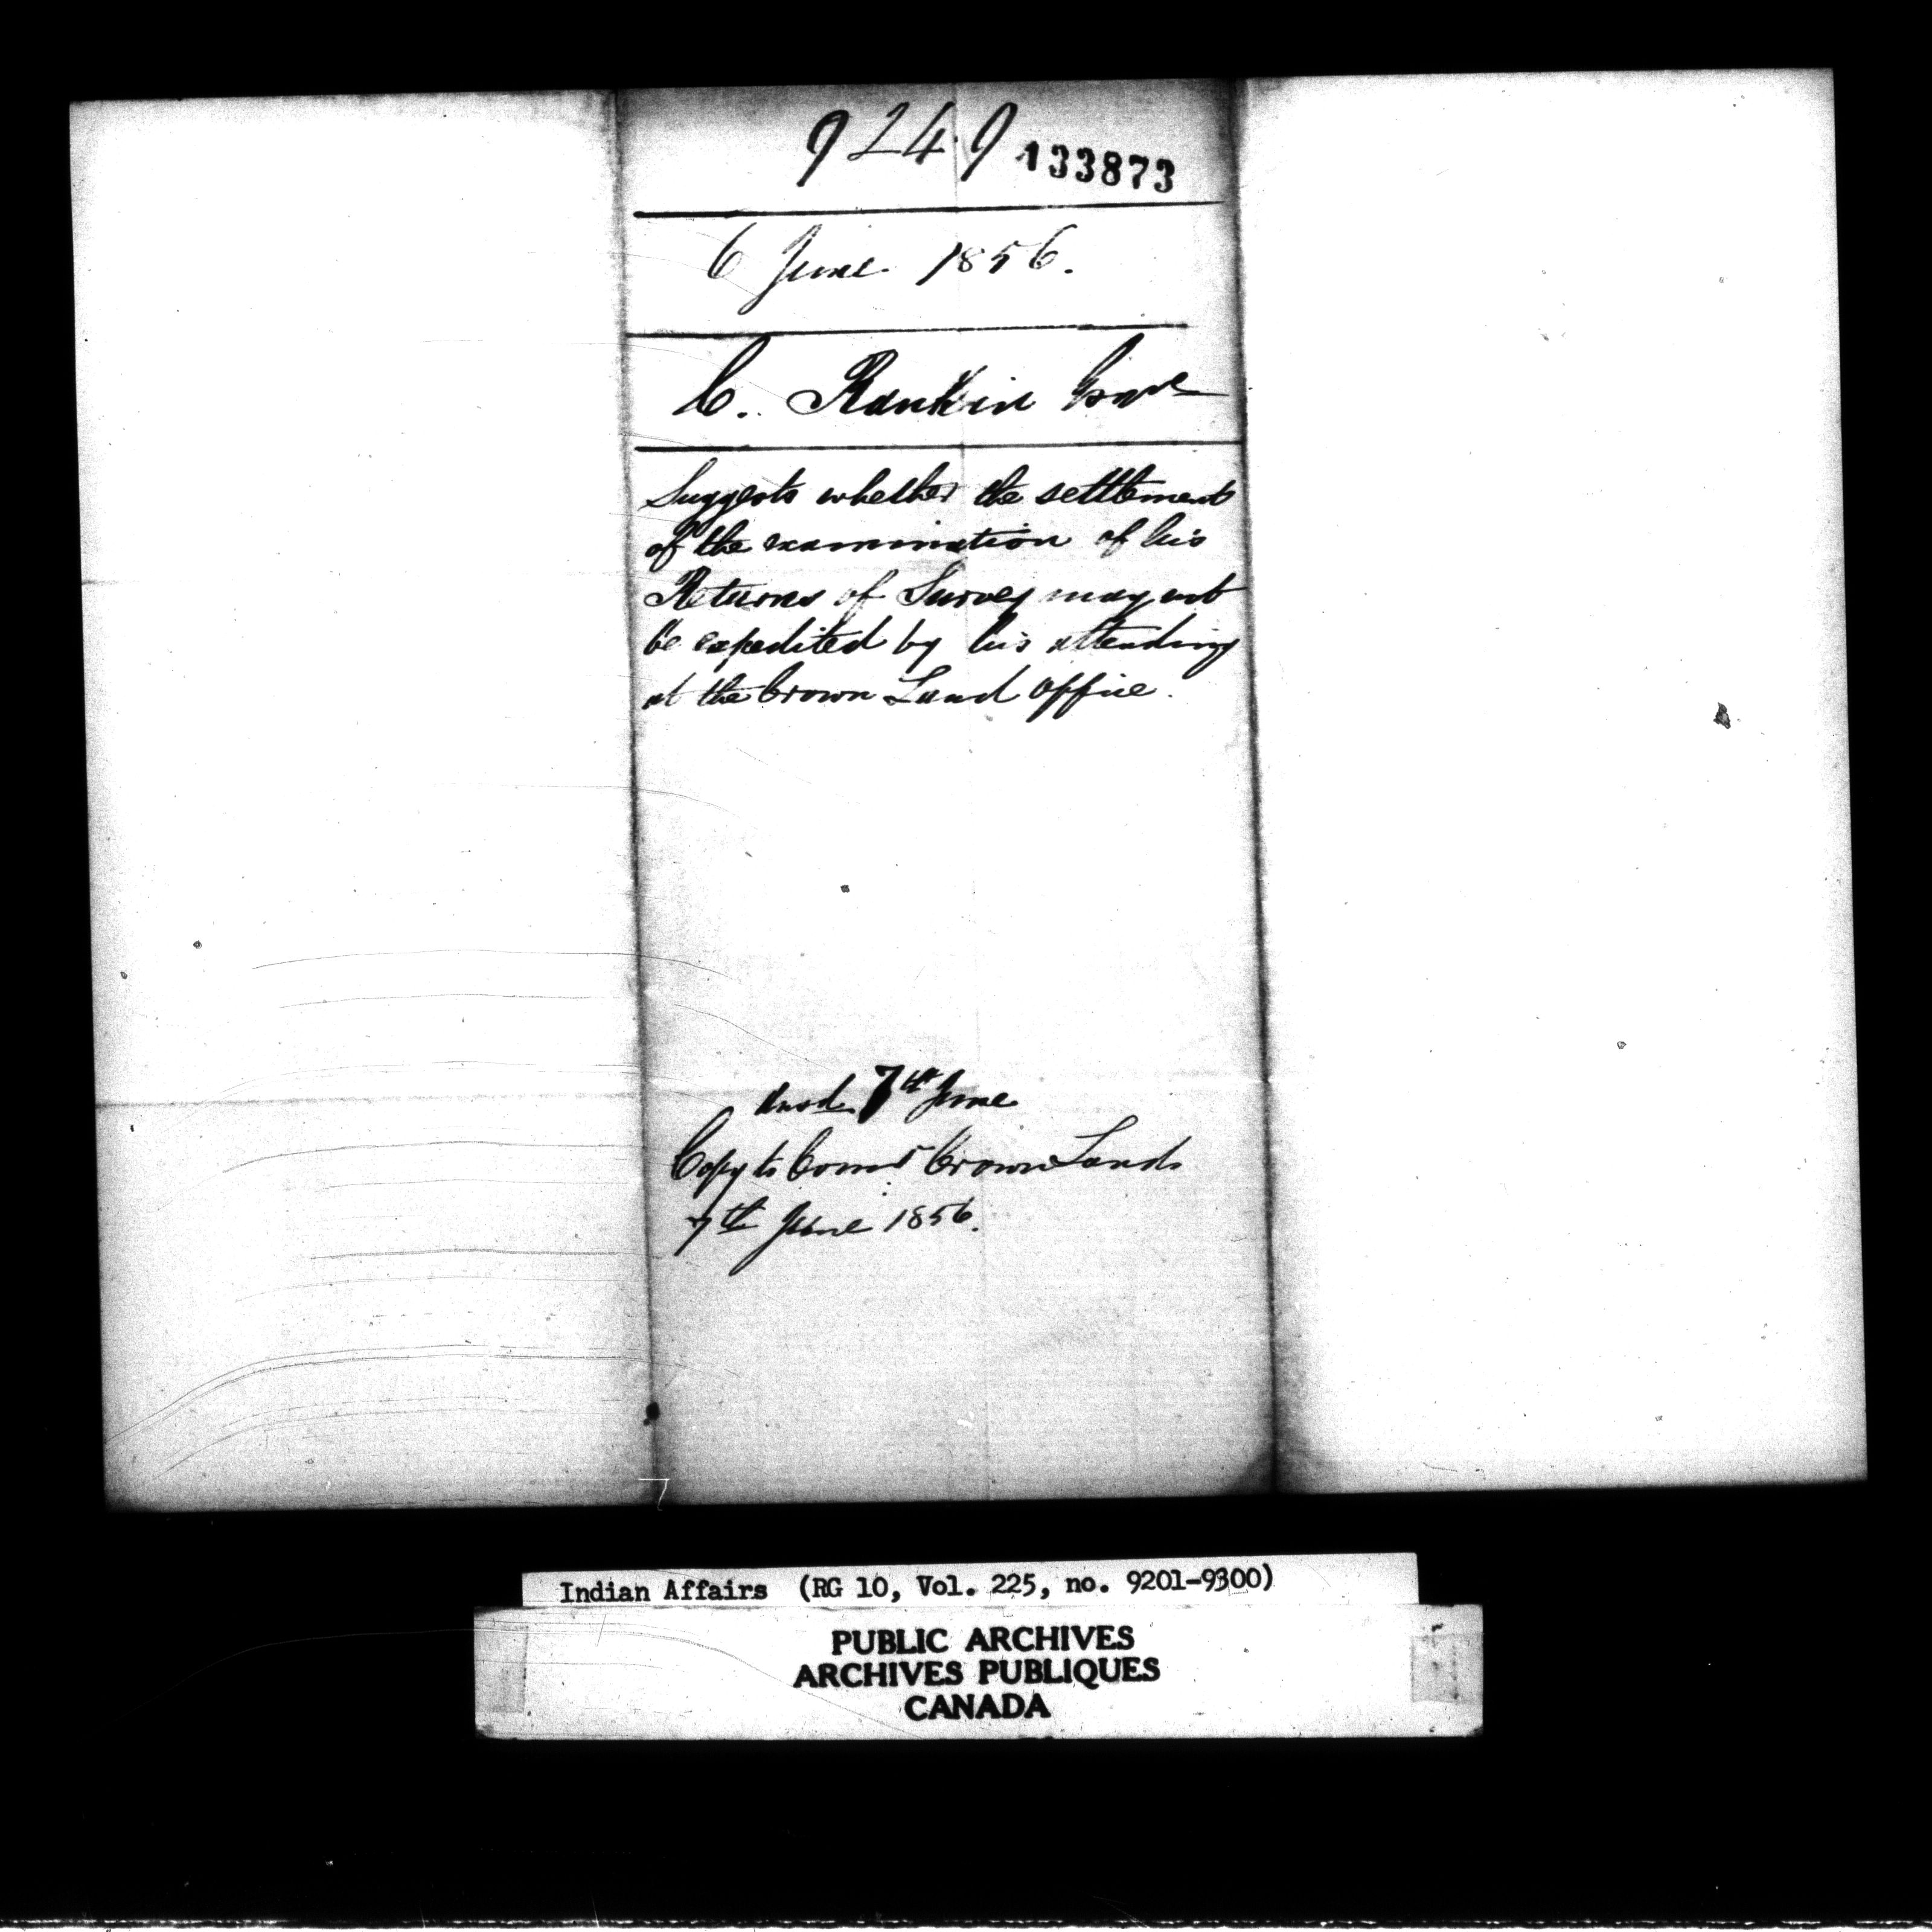 9249 133873
6 June 1856.
C. Rankin Esqre
Suggests whether the settlement
of the examination of his
Returns of Survey may not
be expedited by his attending
at the Crown Land Office.
Ansd 7th June
Copy to Commr Crown Lands
7th June 1856.
Indian Affairs (RG 10, Vol. 225, no. 9201-9300)
PUBLIC ARCHIVES
ARCHIVES PUBLIQUES
CANADA